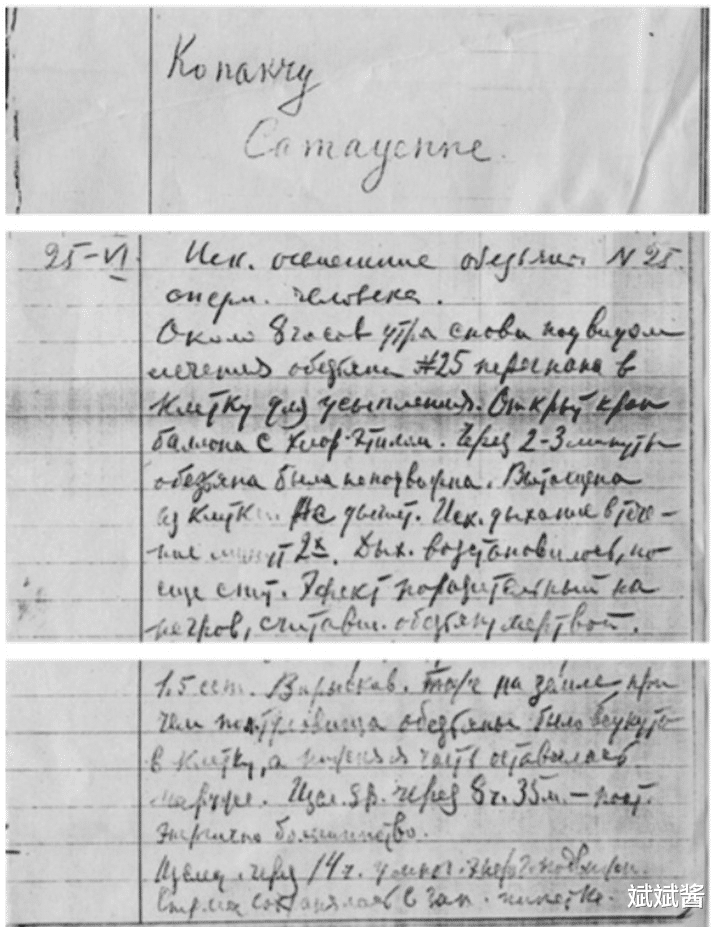 Копакчу
25-VI
Иск. осеменение обезьян. N 25.
сперм. человека.
Около 8 часов утра снова под видом
лечения обезьяна #25 перегнана в
клетку для усыпления. Открыт кран
баллона с хлор-этилом. Через 2-3 минуты
обезьяна была неподвижна. Вытащена
из клетки. Не дышит. Иск. дыхание в тече-
ние минут 2х. Дых. возстановилось, но
еще спит. Эфект поразительный на
негров, считавш. обезьян мертвой.
Впрыскив. на земле при
чем туловища обезьяны было
в клетку, а часть оставалась
через 8 ч. 35 м. –
энергично большинство.
через 14 ч.
斌斌酱